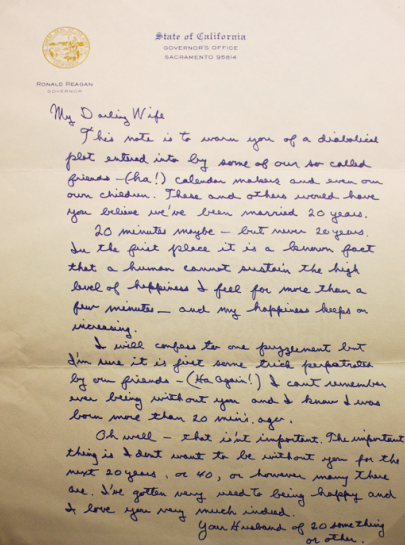 State of California
GOVERNOR'S OFFICE
SACRAMENTO 95814
RONALD REAGAN
GOVERNOR
My Darling Wife
This note is to warn you of a diabolical
plot entered into by some of our so called
friends - (ha!) calendar makers and even our
own children. These and others would have
you believe we've been married 20 years.
20 minutes maybe - but never 20 years.
In the first place it is a known fact
that a human cannot sustain the high
level of happiness I feel for more than a
few minutes - and my happiness keeps on
increasing.
I will confess to one puzzlement but
I'm sure it is just some trick perpetrated
by our friends - (Ha Again!) I can't remember
ever being without you and I know I was
born more than 20 mins. ago.
Oh well - that isn't important. The important
thing is I don't want to be without you for the
next 20 years, or 40, or however many there
are. I've gotten very used to being happy and
I love you very much indeed.
Your Husband of 20 something
or other.